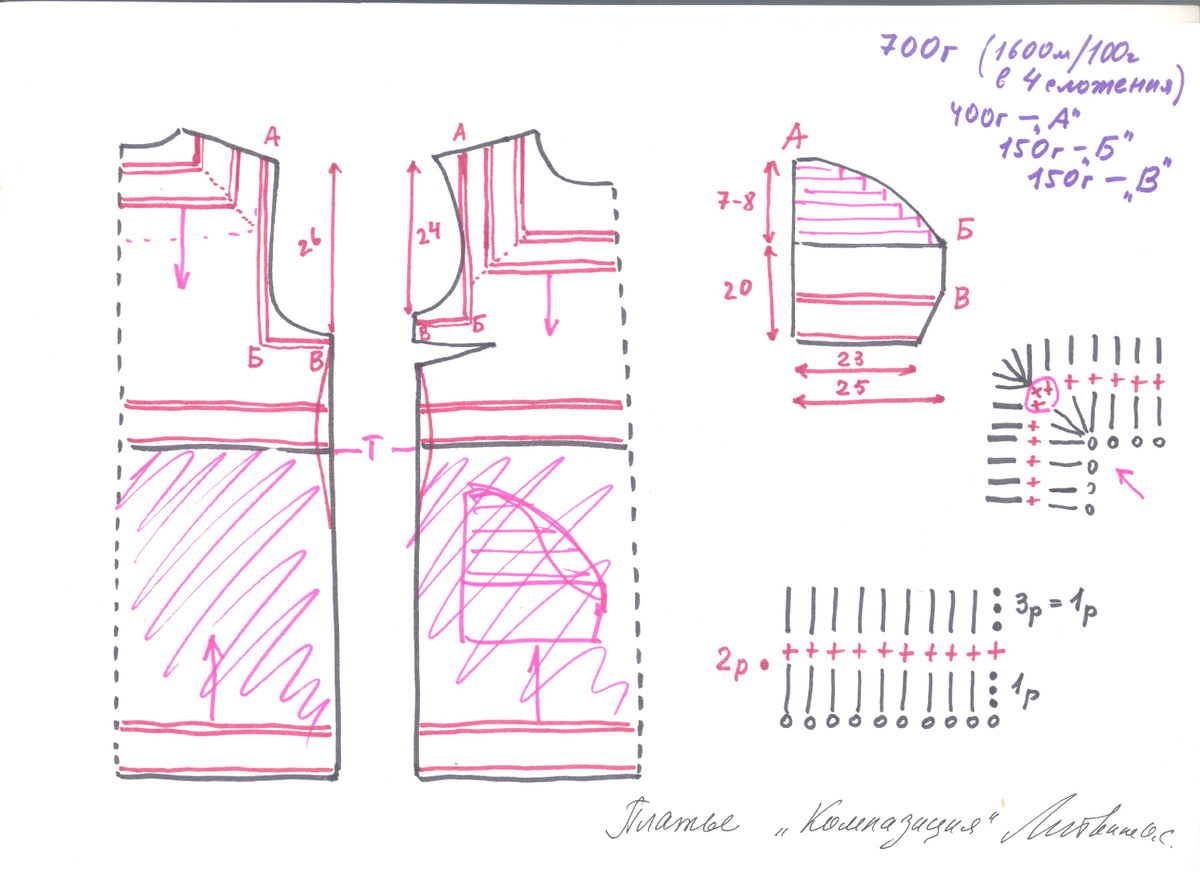 700г (1600м/100г
в 4 сложения)
400г – „А"
150г – „Б"
150г – „В"
А
А
А
26
24
7-8
Б
20
В
Б
В
В
Б
23
25
Т
3р = 1р
2р
1р
Платье „Компазиция"